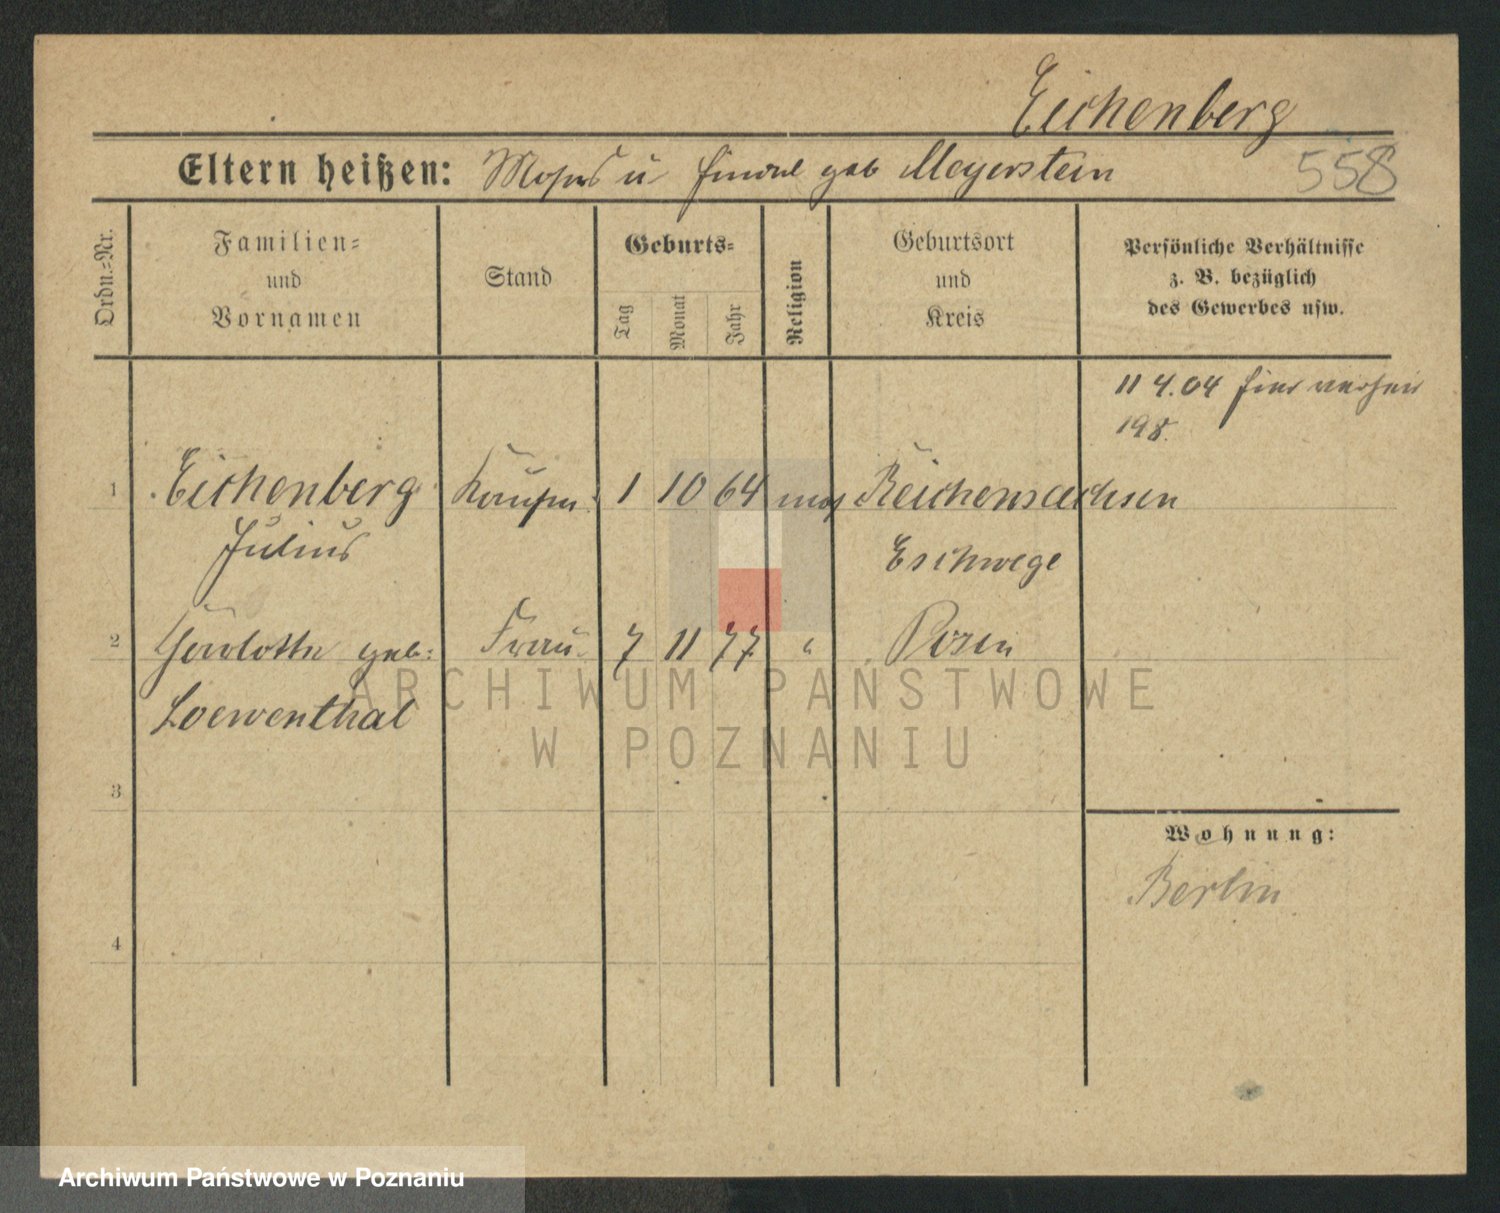 Eichenberg
Eltern heißen: Moses u geb Meyerstein 558
Ordn.=Nr.
Familien=
und
Vornamen
Stand
Geburts=
Tag
Monat
Jahr
Religion
Geburtsort
und
Kreis
Persönliche Verhältnisse
z. B. bezüglich
des Gewerbes usw.
11 4.04 hier
198.
1 Eichenberg Kaufm. 1 10 64 mos Reichensachsen
Julius Eschwege
2 geb: Frau 7 11 77 " Posen
Loewenthal
3
Wohnung:
Berlin
4
ARCHIWUM PAŃSTWOWE
W POZNANIU
Archiwum Państwowe w Poznaniu